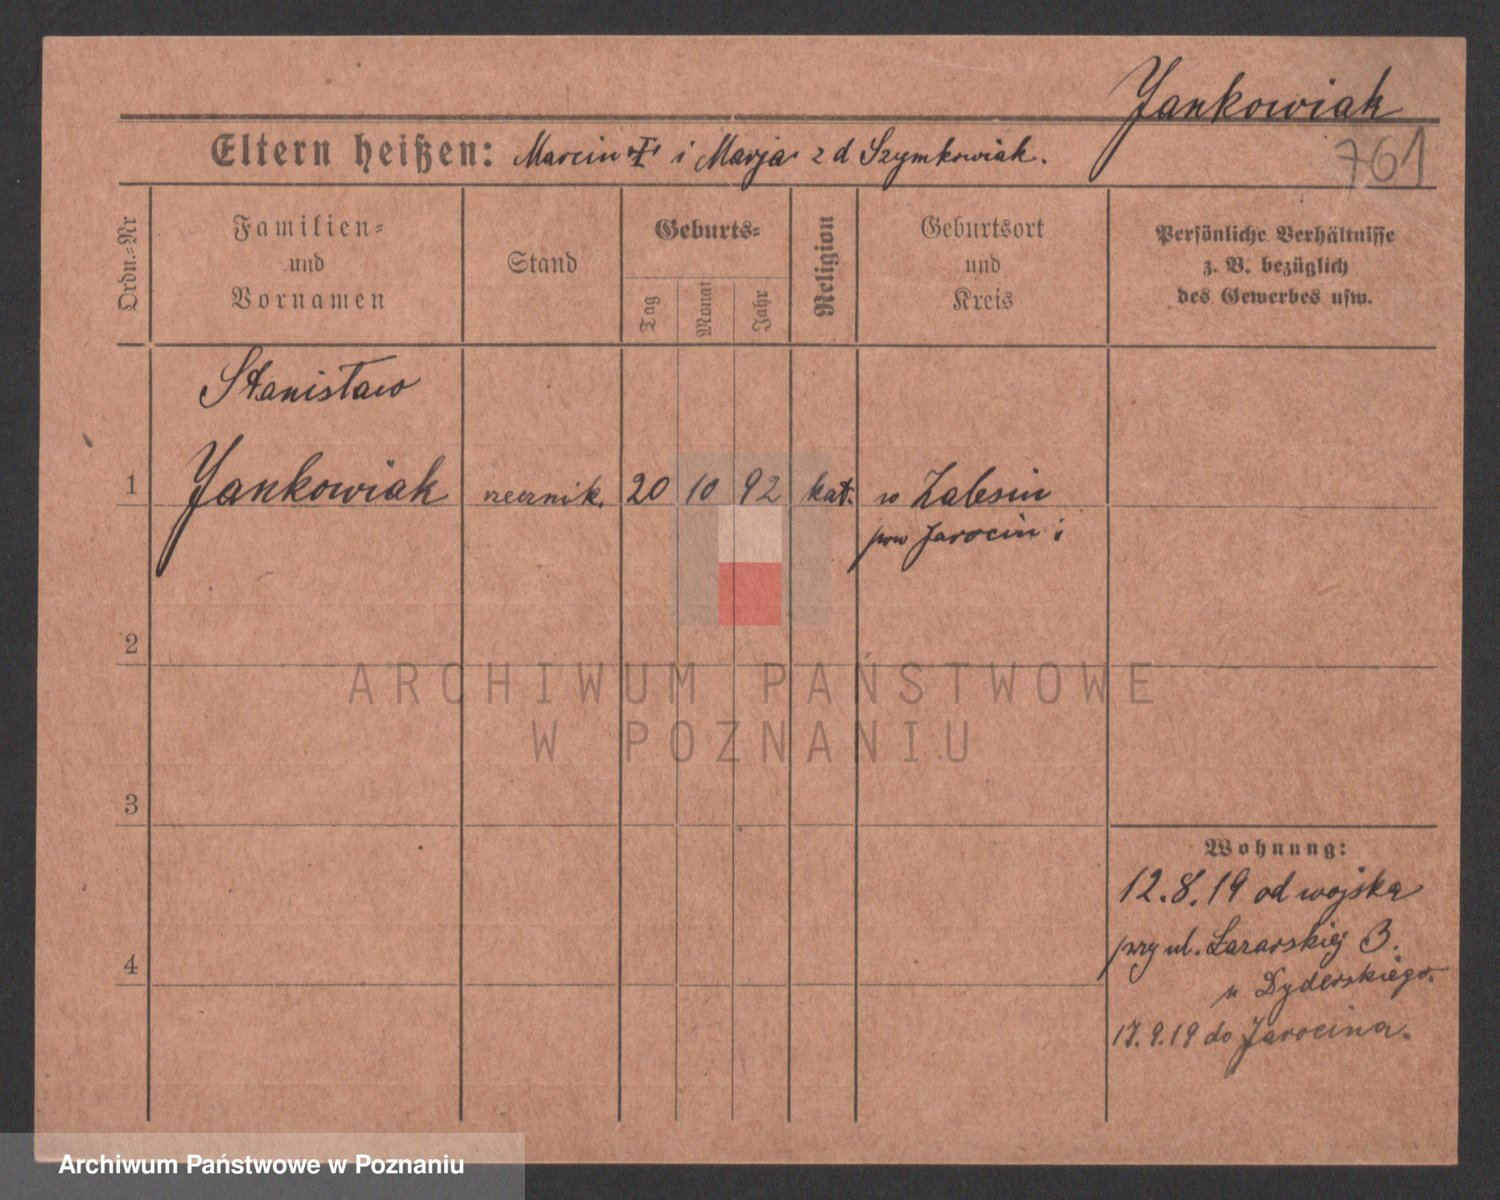 Jankowiak
761
Eltern heißen: Marcin † i Marja z d Szymkowiak.
Ordn.=Nr
Familien=
und
Vornamen
Stand
Geburts=
Tag
Monat
Jahr
Religion
Geburtsort
und
Kreis
Persönliche Verhältnisse
z. B. bezüglich
des Gewerbes usw.
Stanisław
1 Jankowiak 20 10 92 kat. w Zalesiu
pow Jarocin
2
3
4
Wohnung:
12.8.19 od wojska
przy ul. Łazarskiej 3.
u Dyderskiego.
17.9.19 do Jarocina.
ARCHIWUM PAŃSTWOWE
W POZNANIU
Archiwum Państwowe w Poznaniu